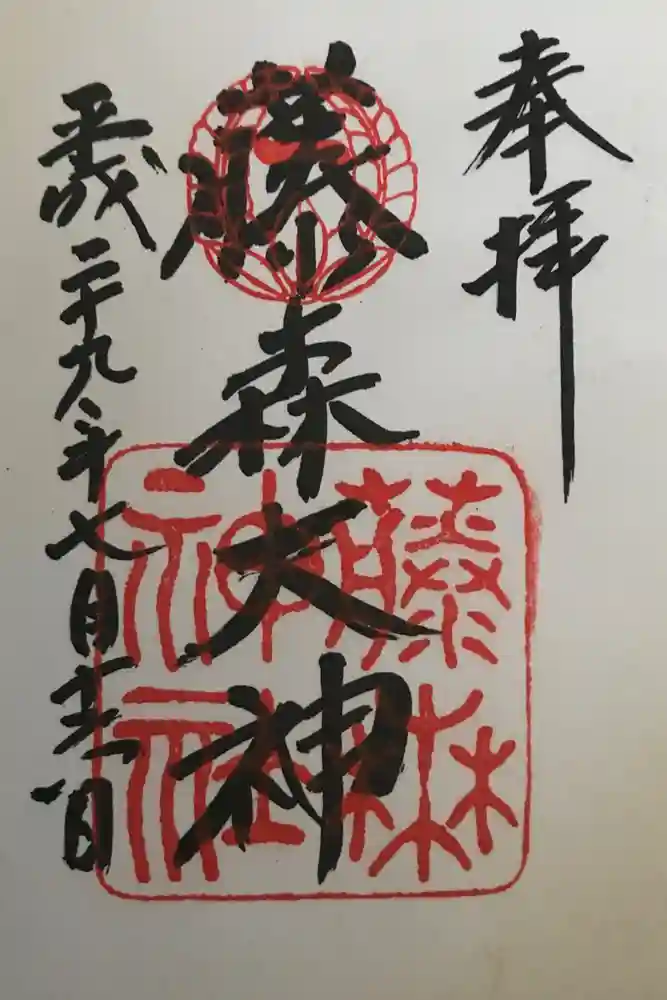 奉拝
藤森大神
平成二十九年七月日
藤森
神社